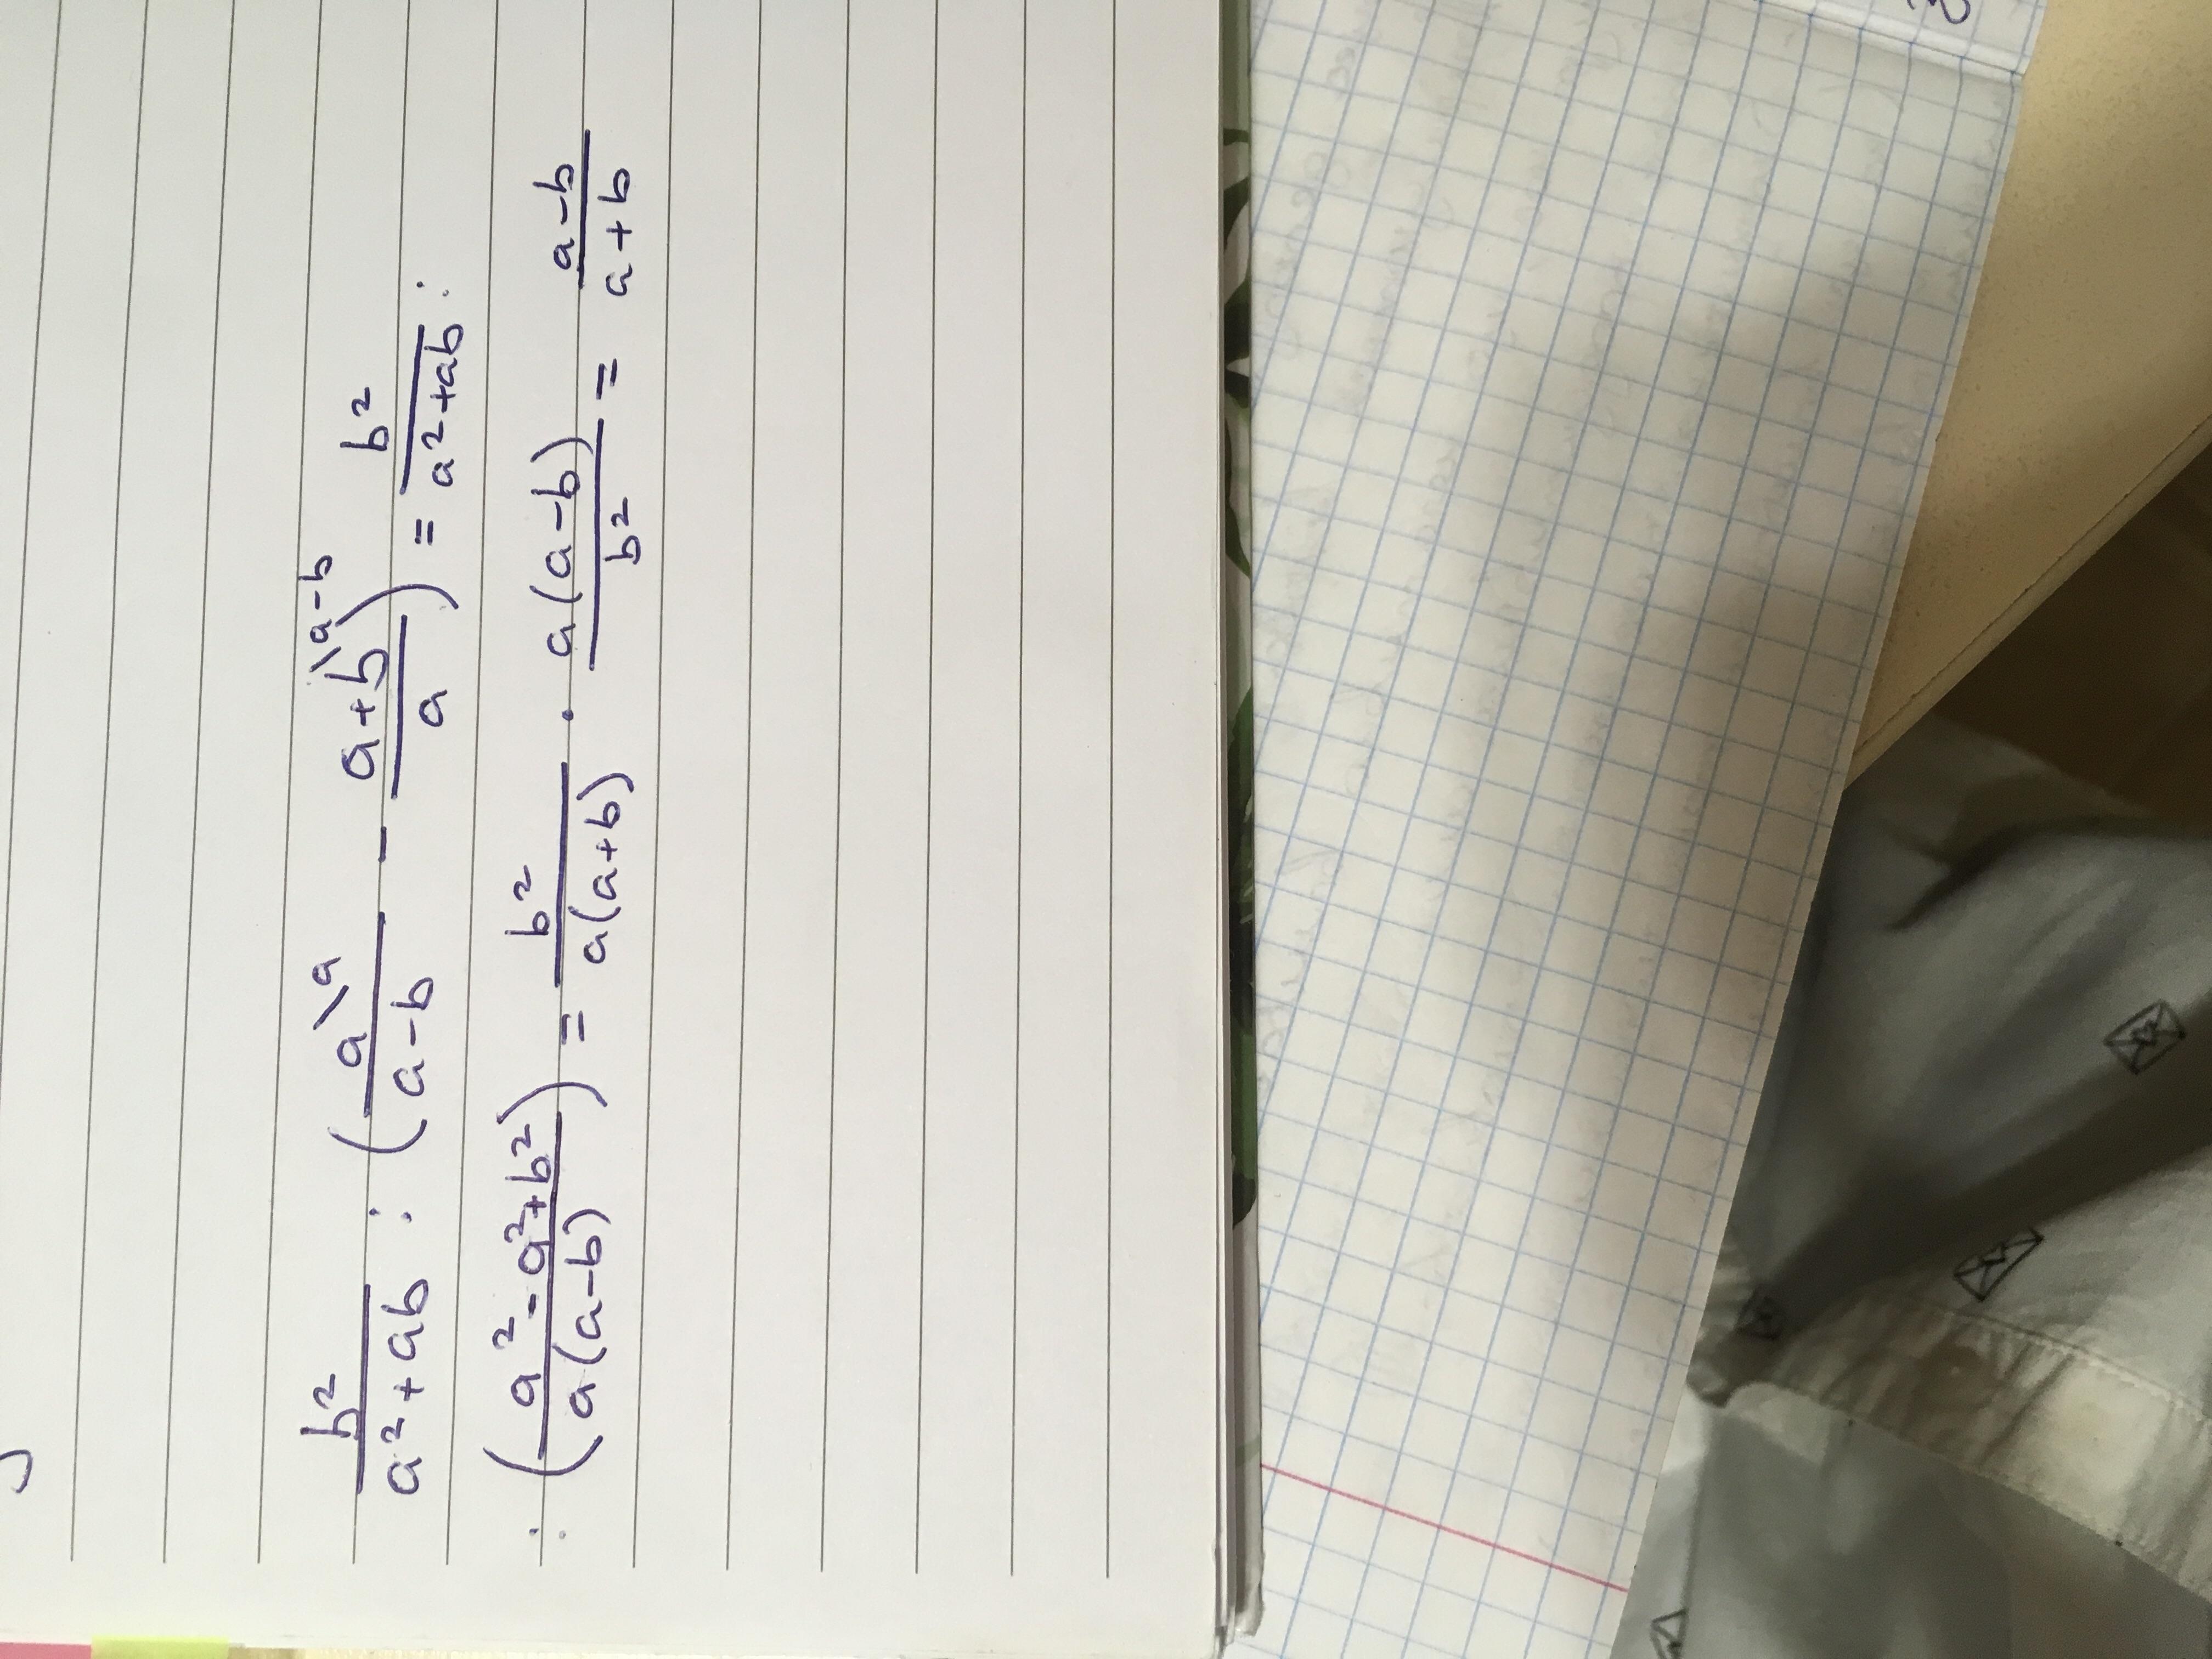 b²/(a²+ab) : (a\a/(a-b) - a+b\a-b/a) = b²/(a²+ab) :
: ((a²-a²+b²)/(a(a-b))) = b²/(a(a+b)) · a(a-b)/b² = (a-b)/(a+b)